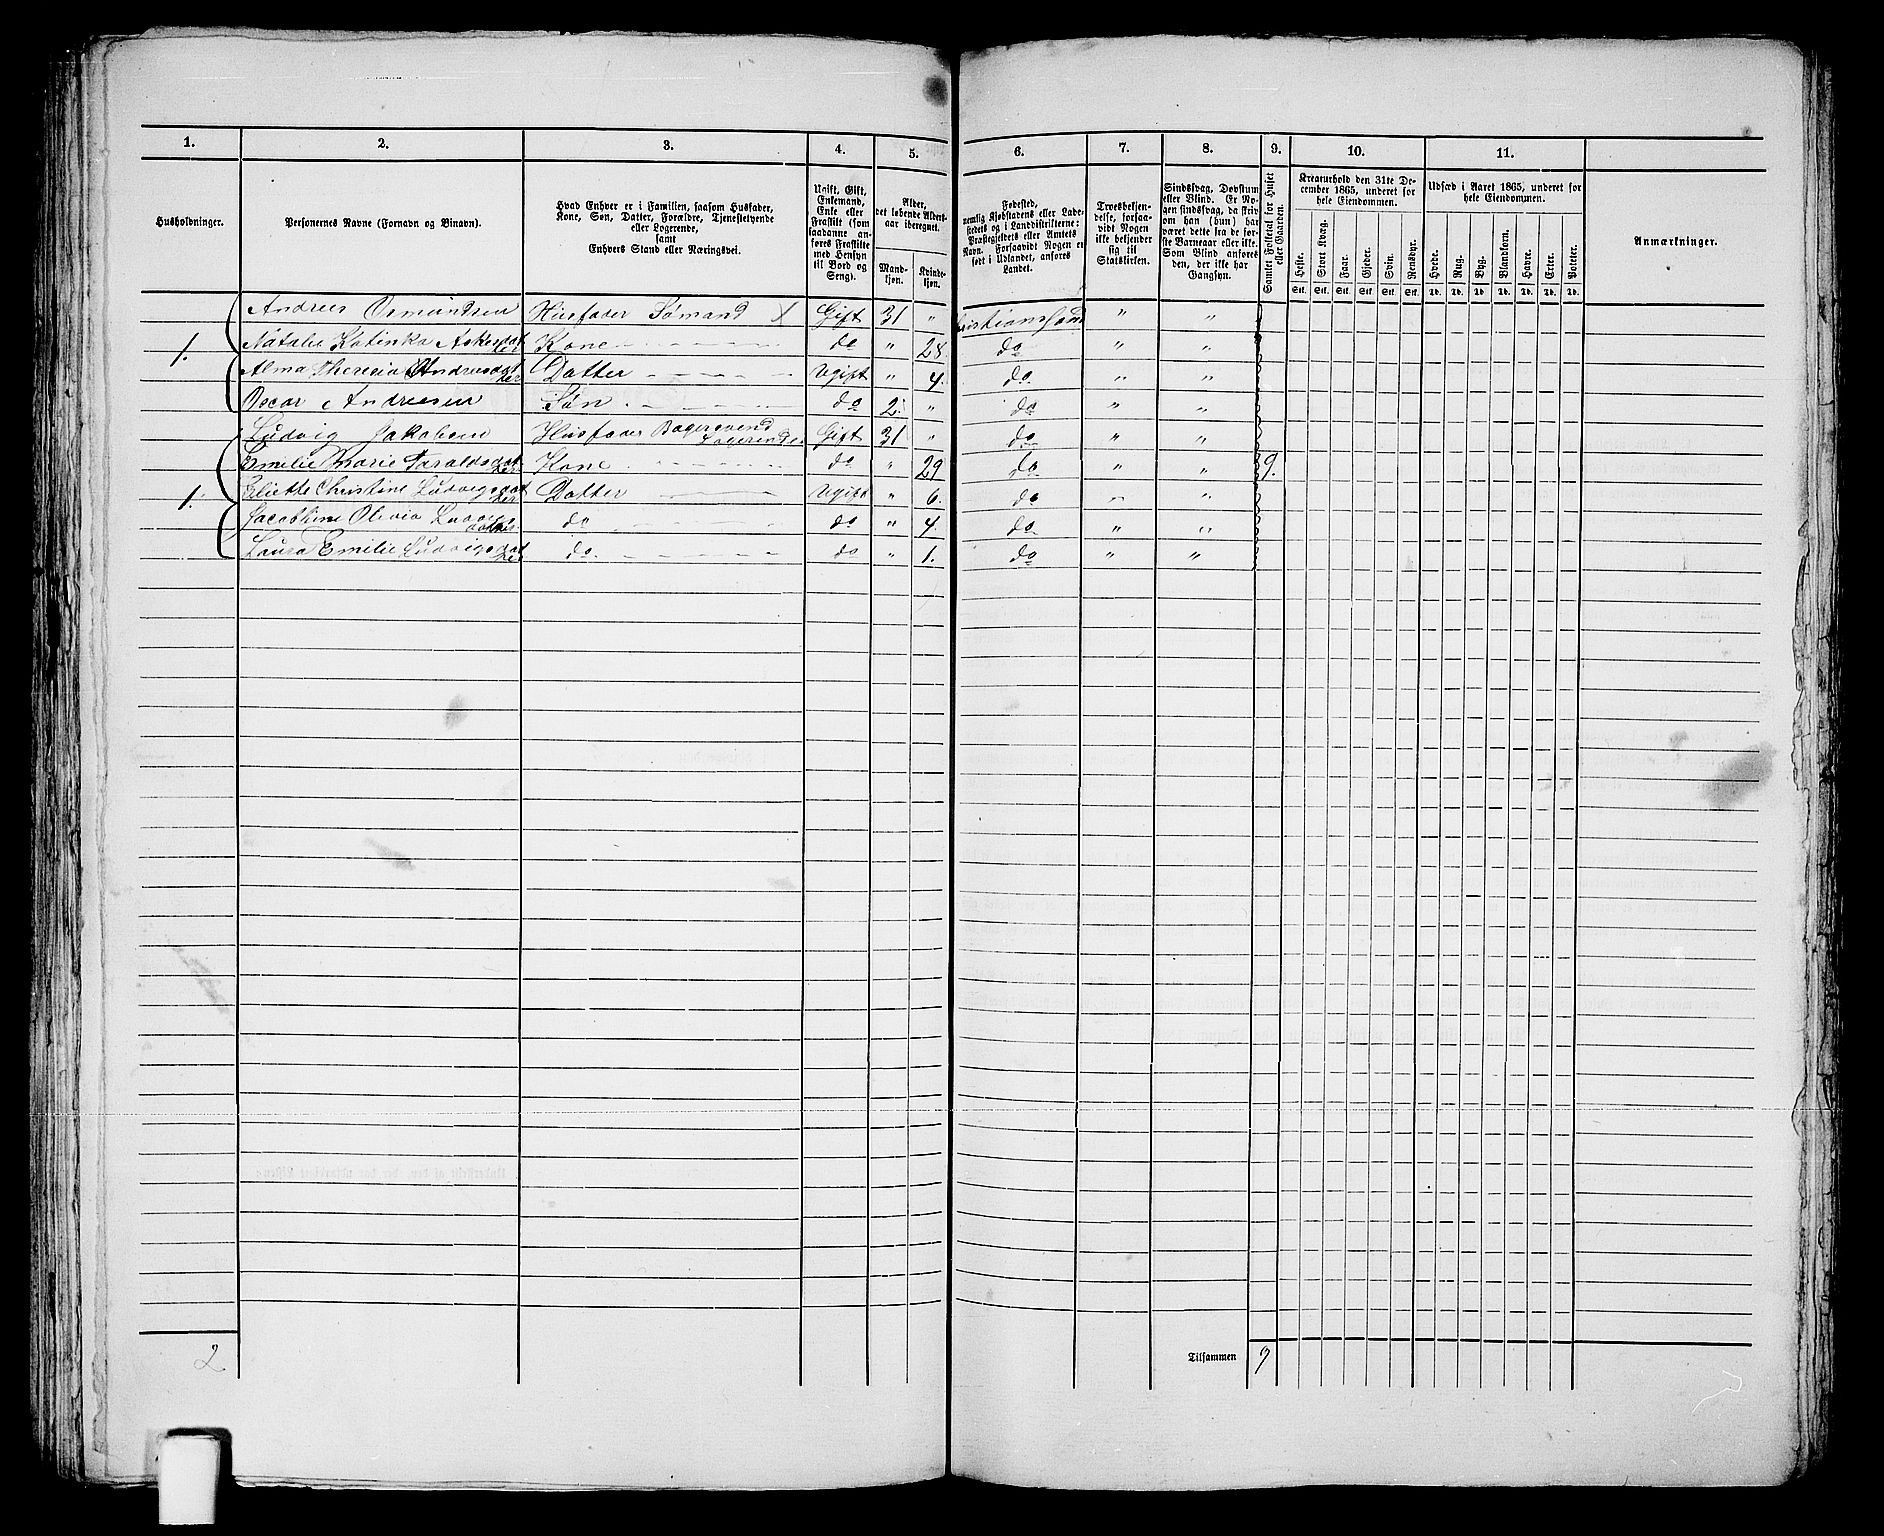 1. 2. 3. 4. 5. 6. 7. 8. 9. 10. 11.
Husholdninger.
Personernes Navne (Fornavn og Binavn).
Hvad Enhver er i Familien, saasom Husfader,
Kone, Søn, Datter, Forældre, Tjenestetyende
eller Logerende,
samt
Enhvers Stand eller Næringsvei.
Ugift, Gift,
Enkemand,
Enke eller
Fraskilt (som
saadanne an-
føres Fraskilte
med Hensyn
til Bord og
Seng).
Alder,
det løbende Alders-
aar iberegnet.
Mand-
kjøn.
Kvinde-
kjøn.
Fødested,
nemlig Kjøbstadens eller Lade-
stedets og i Landdistrikterne:
Præstegjeldets eller Amtets
Navn. Forsaavidt Nogen er
født i Udlandet, anføres
Landet.
Troesbekjen-
delse, forsaa-
vidt Nogen
ikke bekjender
sig til
Statskirken.
Sindssvag, Døvstum
eller Blind. Er No-
gen sindssvag, da skriv
om han (hun) har
været dette fra de før-
ste Barneaar eller ikke.
Som Blind anføres
den, der ikke har
Gangsyn.
Samlet Folketal for Huset
eller Gaarden.
Kreaturhold den 31te De-
cember 1865, underet for
hele Eiendommen.
Heste. Stort Kvæg. Faar. Gjeder. Svin. Rensdyr.
Stk. Stk. Stk. Stk. Stk. Stk.
Udsæd i Aaret 1865, underet for
hele Eiendommen.
Hvede. Rug. Byg. Blandkorn. Havre. Erter. Poteter.
Td. Td. Td. Td. Td. Td. Td.
Anmærkninger.
Andreas Osmundsen Husfader Sømand X Gift 31 " Christianssand " "
1. Natalie Katinka Askesdatter Kone do " 28. do " "
Alma Theresia Andreasdatter Datter Ugift " 4. do " "
Oscar Andreesen Søn do 2. " do " "
Ludvig Jakobsen Husfader Logerende Gift 31 " do " "
Emilie Marie Taraldsdatter Kone do " 29 do " " 9.
1. Eliette Christine Ludvigsdatter Datter Ugift " 6. do " "
Jacobine Olivia Ludvigsdatter do do " 4. do " "
Laura Emilie Ludvigsdatter do. do " 1. do " "
2 Tilsammen 9